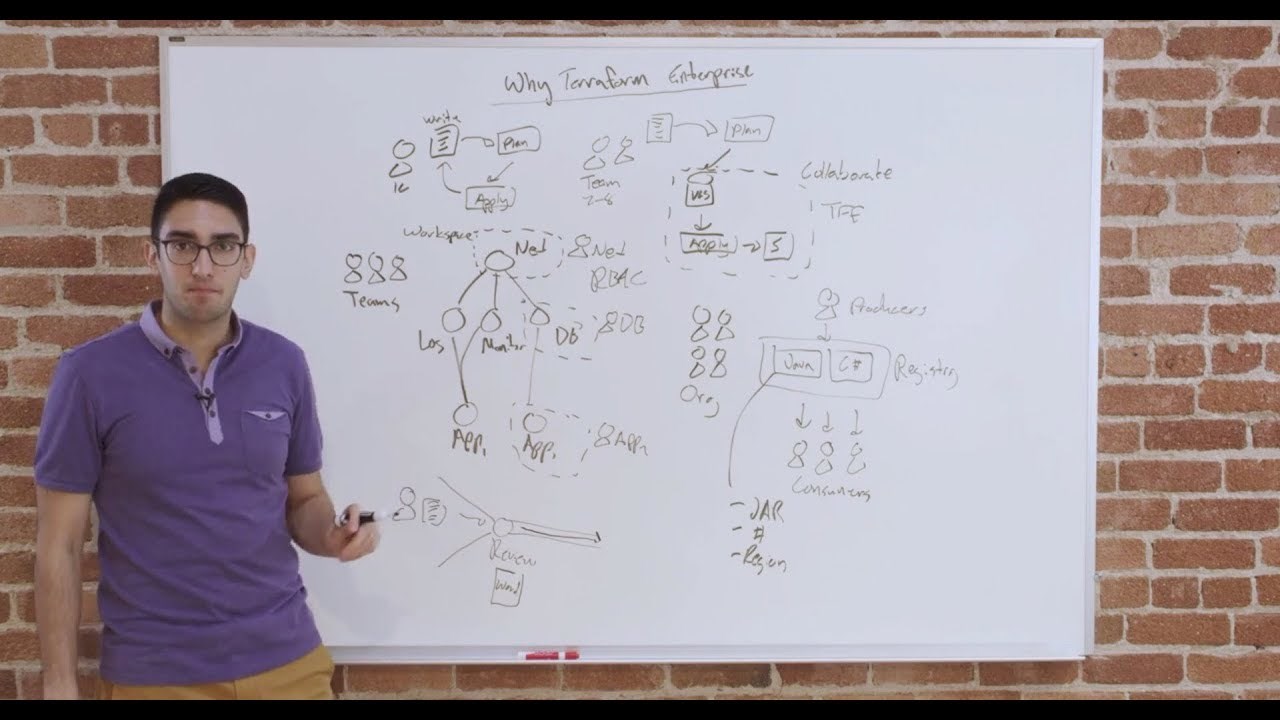 Why Terraform Enterprise
write
Plan
Apply
1c
Team
7-8
Plan
VCS
Apply
S
Collaborate
TFE
Workspace
Net
Net
RBAC
Teams
Log
Monitor
DB
DB
App1
App1
App1
Review
Word
Org
Producers
Java
C#
Registry
Consumers
- JAR
- #
- Region